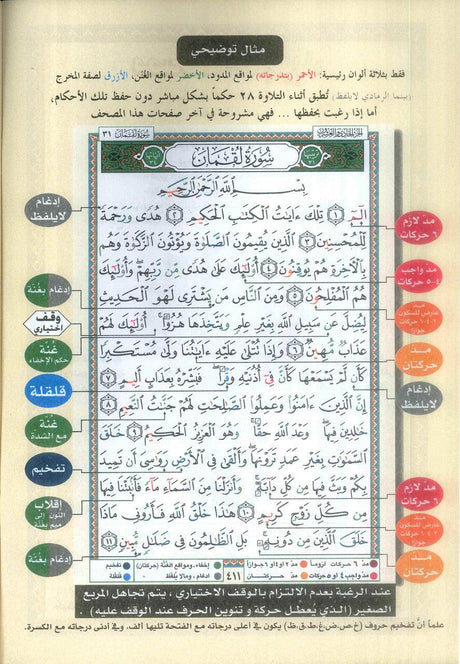 مثال توضيحي
فقط بثلاثة ألوان رئيسية: الأحمر (بتدرجاته) لمواقع المدود، الأخضر لمواقع الغنن، الأزرق لصفة المخرج
(بينما الرمادي لايلفظ) تُطبق أثناء التلاوة ٢٨ حكماً بشكل مباشر دون حفظ تلك الأحكام،
أما إذا رغبت بحفظها ... فهي مشروحة في آخر صفحات هذا المصحف
الجزء الحادي والعشرون
سورة لقمان ٣١
سورة لقمان
بسم الله الرحمن الرحيم
الٓمٓ ١ تِلْكَ ءَايَٰتُ ٱلْكِتَٰبِ ٱلْحَكِيمِ ٢ هُدًى وَرَحْمَةً
لِّلْمُحْسِنِينَ ٣ ٱلَّذِينَ يُقِيمُونَ ٱلصَّلَوٰةَ وَيُؤْتُونَ ٱلزَّكَوٰةَ وَهُم
بِٱلْءَاخِرَةِ هُمْ يُوقِنُونَ ٤ أُو۟لَٰٓئِكَ عَلَىٰ هُدًى مِّن رَّبِّهِمْ وَأُو۟لَٰٓئِكَ
هُمُ ٱلْمُفْلِحُونَ ٥ وَمِنَ ٱلنَّاسِ مَن يَشْتَرِى لَهْوَ ٱلْحَدِيثِ
لِيُضِلَّ عَن سَبِيلِ ٱللَّهِ بِغَيْرِ عِلْمٍ وَيَتَّخِذَهَا هُزُوًا أُو۟لَٰٓئِكَ لَهُمْ
عَذَابٌ مُّهِينٌ ٦ وَإِذَا تُتْلَىٰ عَلَيْهِ ءَايَٰتُنَا وَلَّىٰ مُسْتَكْبِرًا
كَأَن لَّمْ يَسْمَعْهَا كَأَنَّ فِىٓ أُذُنَيْهِ وَقْرًا فَبَشِّرْهُ بِعَذَابٍ أَلِيمٍ ٧
إِنَّ ٱلَّذِينَ ءَامَنُوا۟ وَعَمِلُوا۟ ٱلصَّٰلِحَٰتِ لَهُمْ جَنَّٰتُ ٱلنَّعِيمِ ٨
خَٰلِدِينَ فِيهَا وَعْدَ ٱللَّهِ حَقًّا وَهُوَ ٱلْعَزِيزُ ٱلْحَكِيمُ ٩ خَلَقَ
ٱلسَّمَٰوَٰتِ بِغَيْرِ عَمَدٍ تَرَوْنَهَا وَأَلْقَىٰ فِى ٱلْأَرْضِ رَوَٰسِىَ أَن تَمِيدَ
بِكُمْ وَبَثَّ فِيهَا مِن كُلِّ دَآبَّةٍ وَأَنزَلْنَا مِنَ ٱلسَّمَآءِ مَآءً فَأَنۢبَتْنَا فِيهَا
مِن كُلِّ زَوْجٍ كَرِيمٍ ١٠ هَٰذَا خَلْقُ ٱللَّهِ فَأَرُونِى مَاذَا
خَلَقَ ٱلَّذِينَ مِن دُونِهِ بَلِ ٱلظَّٰلِمُونَ فِى ضَلَٰلٍ مُّبِينٍ ١١
مد لازم
٦ حركات
مد واجب
٤-٥ حركات
مد
عارض للسكون
٢،٤،٦ حركات
جوازاً
مد
حركتان
إدغام
لايلفظ
مد لازم
٦ حركات
مد
عارض للسكون
٢،٤،٦ حركات
جوازاً
مد
حركتان
إدغام
لايلفظ
إدغام بغنة
وقف
اختياري
غنة
حكم الإخفاء
قلقلة
غنة
مع الشدة
تفخيم
إقلاب
النون إلى
ميم بغنة
إدغام بغنة
مد ٦ حركات لزوماً
مد ٢ أو ٤ أو ٦ جوازاً
إخفاء، ومواقع الغنة (حركتان)
تفخيم
مد واجب ٤ أو ٥ حركات
مد حركتان
إدغام، وما لا يلفظ
قلقلة
٤١١
عند الرغبة بعدم الالتزام بالوقف الاختياري ، يتم تجاهل المربع
الصغير (الذي يُعطل حركة و تنوين الحرف عند الوقف عليه) .
علماً أنّ تفخيم حروف (خ،ص،ض،غ،ط،ق،ظ) يكون في أعلى درجاته مع الفتحة تليها ألف، وفي أدنى درجاته مع الكسرة.